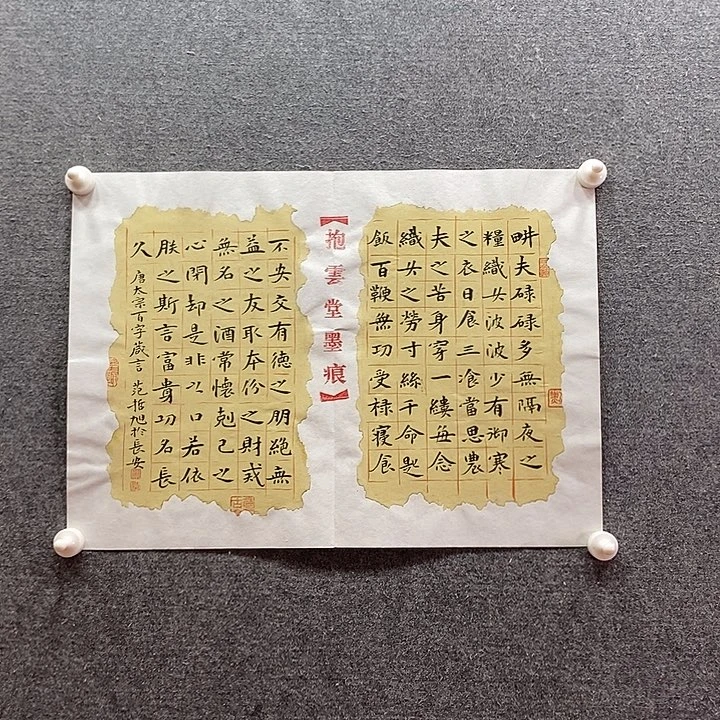 畊夫碌碌多無隔夜之
糧織女波波少有御寒
之衣日食三飡當思農
夫之苦身穿一縷每念
織女之勞寸絲千命匙
飯百鞭無功受祿寢食
【抱雲堂墨痕】
不安交有德之朋絕無
益之友取本份之財戎
無名之酒常懷剋己之
心閉却是非之口若依
朕之斯言富貴功名長
久 唐太宗百字箴言 范哲旭於長安